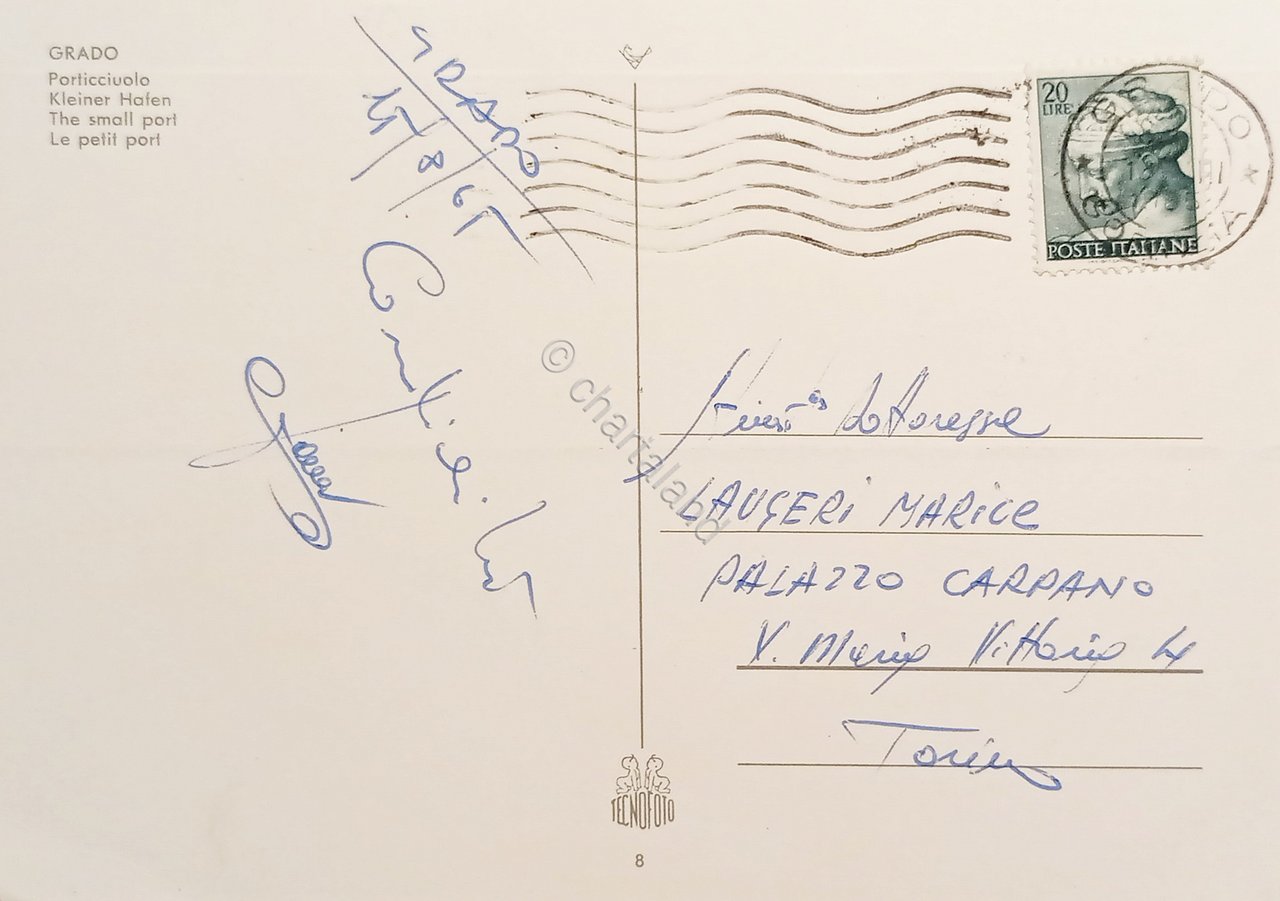 GRADO
Porticciuolo
Kleiner Hafen
The small port
Le petit port
GRADO
15/8/65
20
LIRE
POSTE ITALIANE
GRADO
GORIZIA
dottoressa
LAUGERI MARICE
PALAZZO CARPANO
V. Maria Vittoria 4
Torino
© chartalabd
TECNOFOTO
8